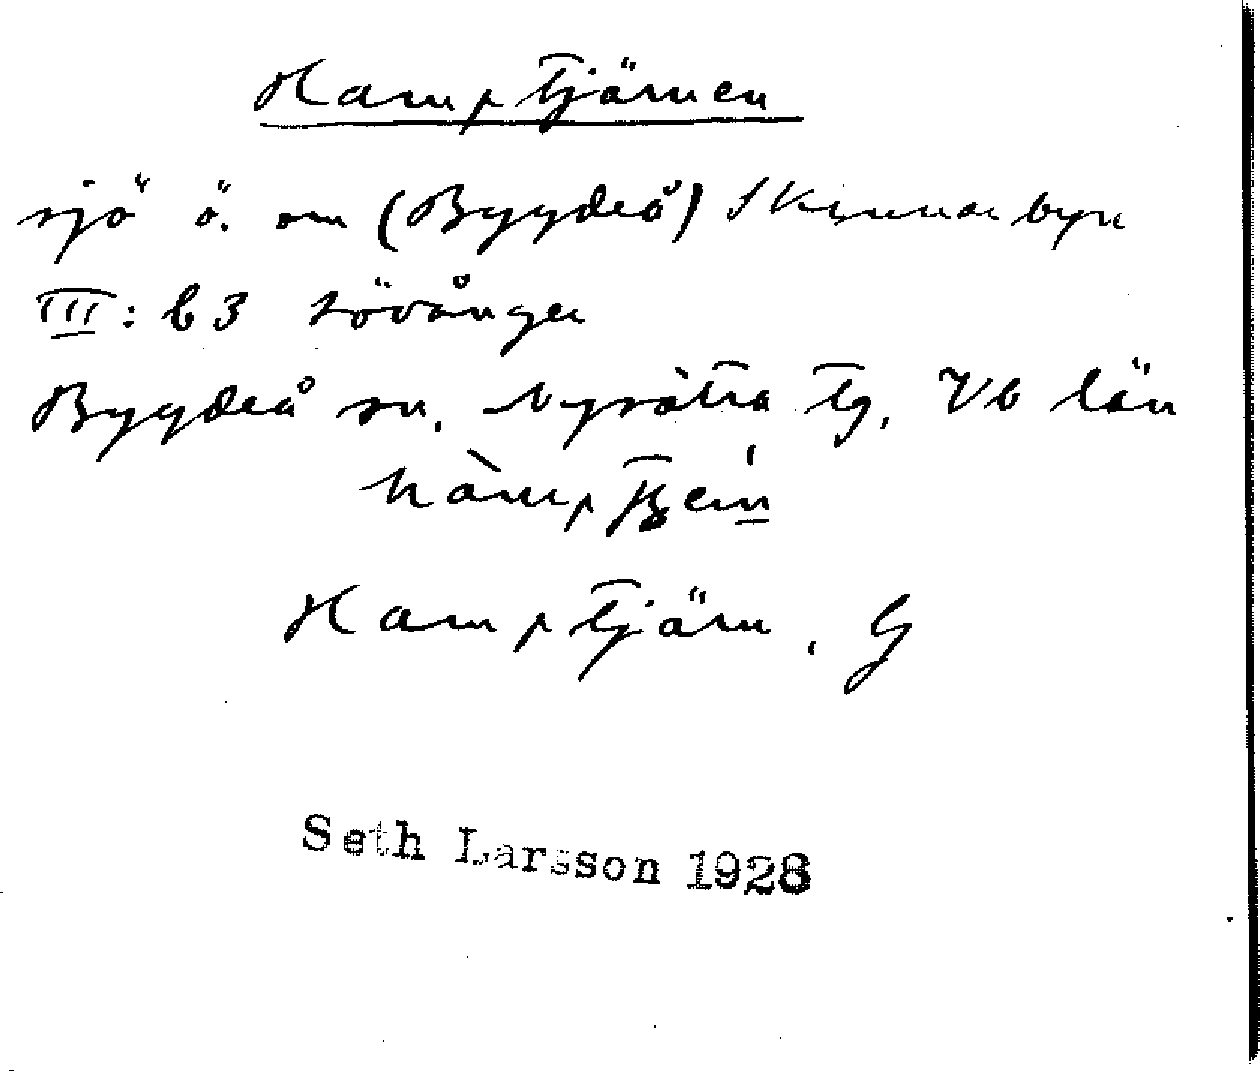 Hamptjärnen
sjö ö. om (Bygdeå) Skinnarbyn
III: b3 Lövånger
Bygdeå sn. Nysätra tg, Vb län
Hamptjärn, G
Seth Larsson 1928